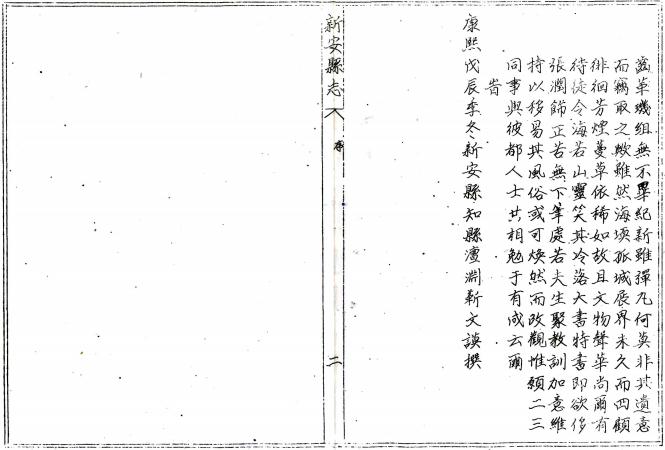 齒革璣組無不畢紀新雖彈丸何莫非其遺意
而竊取之歟雖然海堧孤城展界未久而四顧
徘徊芳煙蔓草依稀如故且文物聲華尚爾有
待徒令海若山靈笑其冷落大書特書即欲侈
張潤飾正苦無下筆處若夫生聚教訓加意維
持以移易其風俗或可煥然而改觀惟願二三
同事與彼都人士共相勉于有成云爾
旹
康熙戊辰季冬新安縣知縣澶淵靳文謨撰
新安縣志
序
二